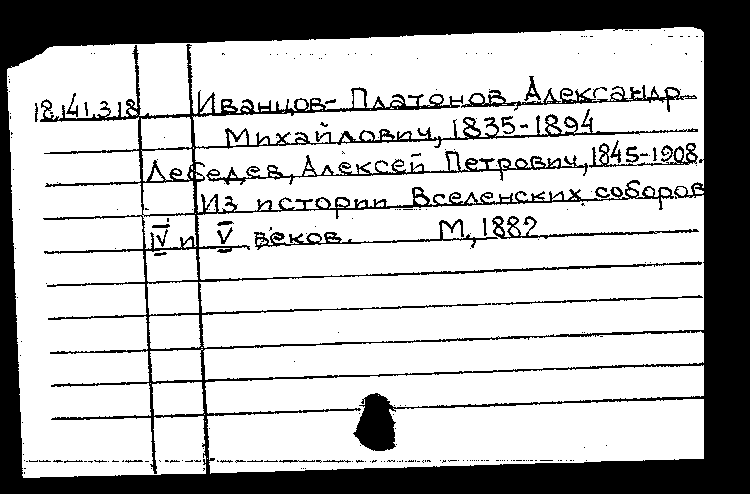 18.141.3.18. Иванцов-Платонов, Александр
Михайлович, 1835-1894
Лебедев, Алексей Петрович, 1845-1908.
Из истории Вселенских соборов
IV и V веков. М., 1882